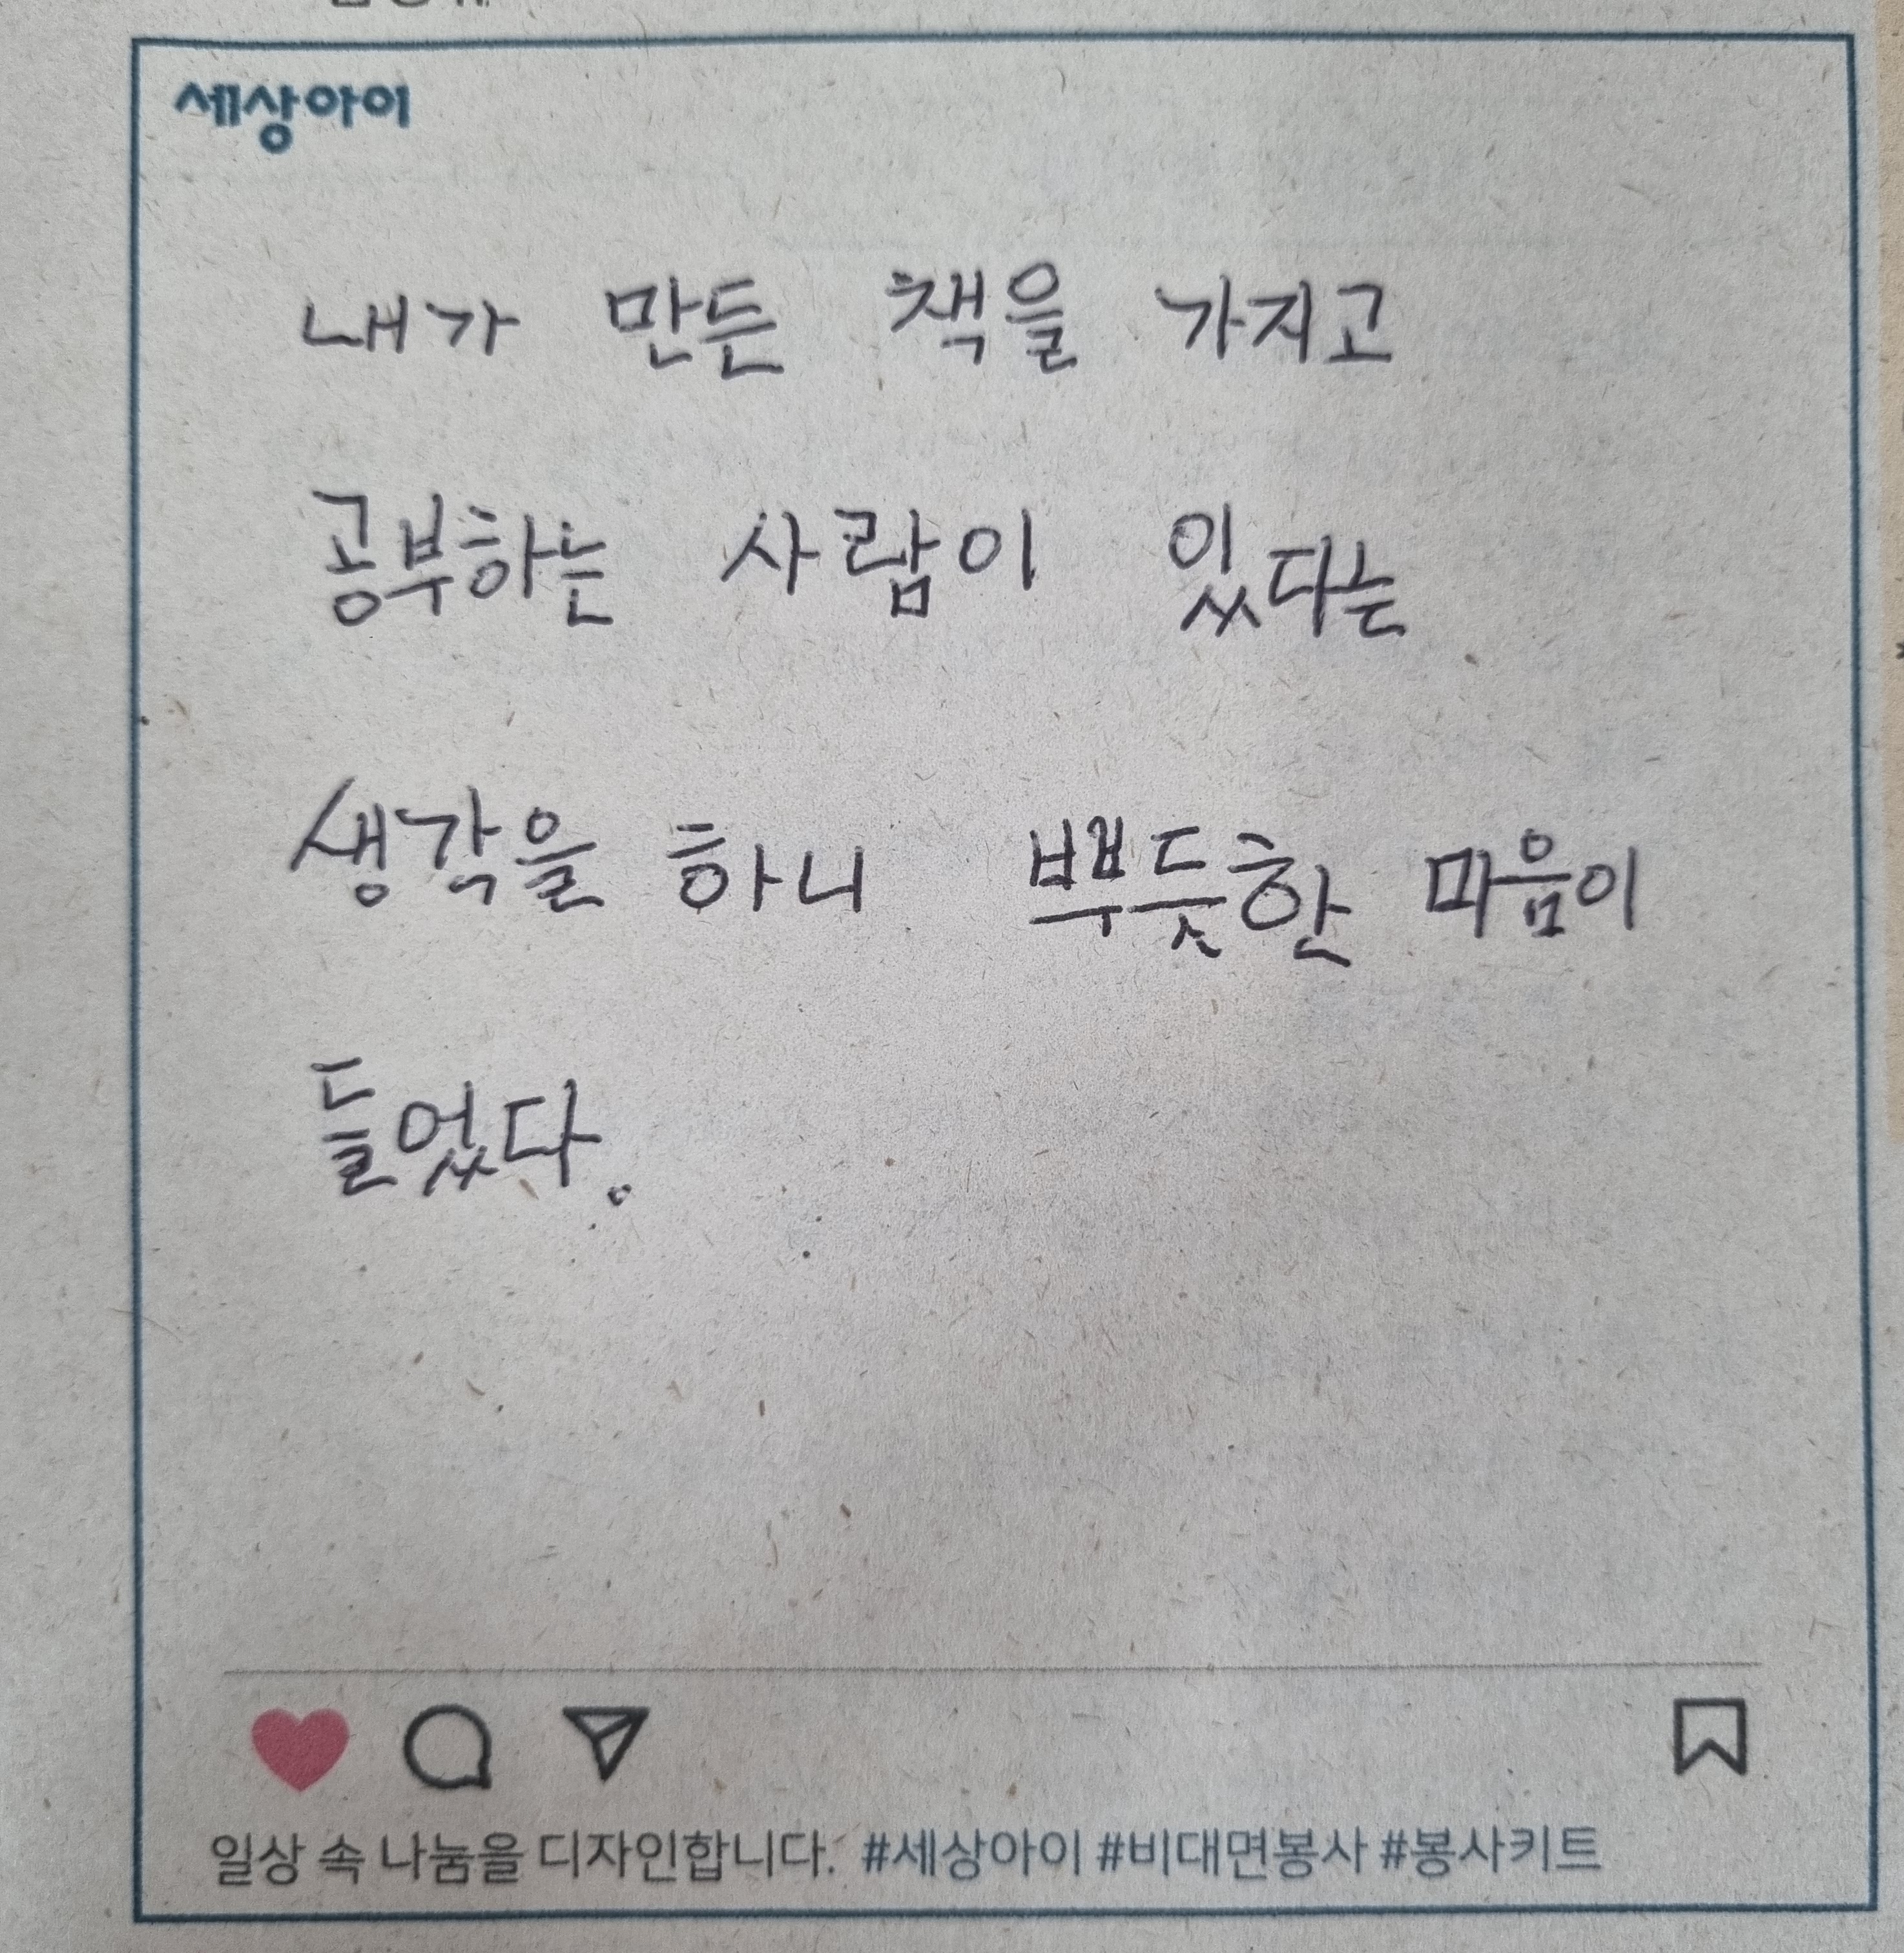 세상아이
내가 만든 책을 가지고
공부하는 사람이 있다는
생각을 하니 뿌듯한 마음이
들었다.
일상 속 나눔을 디자인합니다. #세상아이 #비대면봉사 #봉사키트